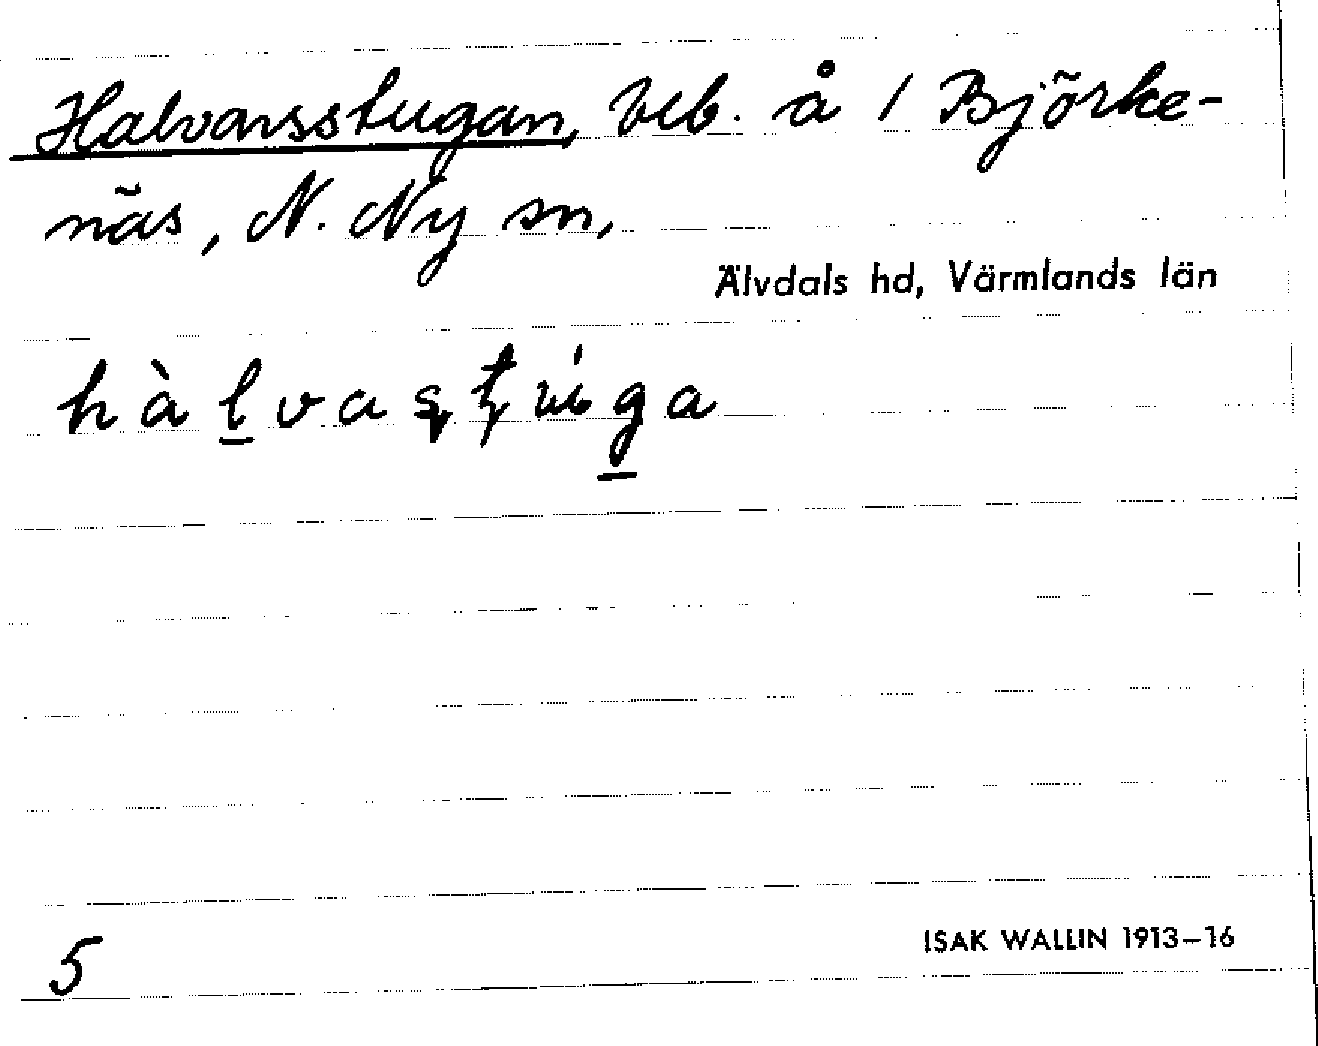 Halvarsstugan, beb. å 1 Björke-
näs, N. Ny sn,
Älvdals hd, Värmlands län
5
ISAK WALLIN 1913–16